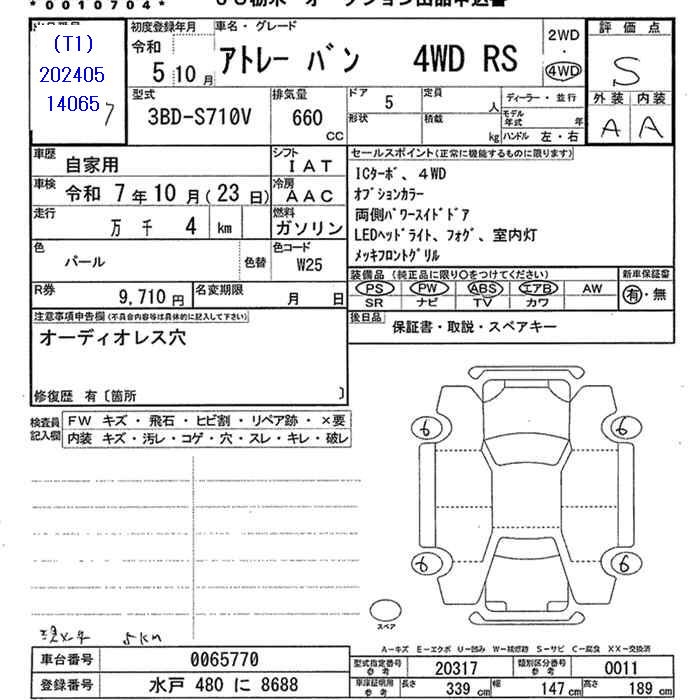 *0010704*
(T1)
202405
14065
7
初度登録年月
令和
5 10 月
車名・グレード
アトレー バン 4WD RS
2WD
・
4WD
評価点
S
外装 内装
A A
型式
3BD-S710V
排気量
660
CC
ドア
5
形状
定員
人
積載
kg
ディーラー・並行
モデル年式 年
ハンドル 左・右
車歴
自家用
シフト
I A T
車検
令和 7 年 10 月 (23 日)
冷房
A A C
走行
万 千 4 km
燃料
ガソリン
色
パール
色替
色コード
W25
R券
9,710 円
名変期限
月 日
セールスポイント(正常に機能するものに限ります)
ICターボ、4WD
オプションカラー
両側パワースイドドア
LEDヘッドライト、フォグ、室内灯
メッキフロントグリル
装備品 (純正品に限り○をつけてください)
PS PW ABS エアB AW
SR ナビ TV カワ
新車保証書
有・無
後日品
保証書・取説・スペアキー
注意事項申告欄(不具合内容等は具体的に記入して下さい)
オーディオレス穴
修復歴 有〔箇所 〕
検査員記入欄
FW キズ・飛石・ヒビ割・リペア跡・×要
内装 キズ・汚レ・コゲ・穴・スレ・キレ・破レ
6 6
6 6
スペア
現メータ 5km
A-キズ E-エクボ U-凹み W-補修跡 S-サビ C-腐食 XX-交換済
車台番号
0065770
登録番号
水戸 480 に 8688
型式指定番号
参考
20317
類別区分番号
参考
0011
車庫証明用
参考
長さ
339 cm
幅
147 cm
高さ
189 cm